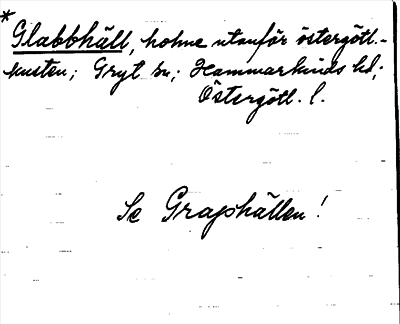 * Glabbhäll, holme utanför östergötl.-
kusten; Gryt sn; Hammarkinds hd;
Östergötl. l.
Se Graphällen!